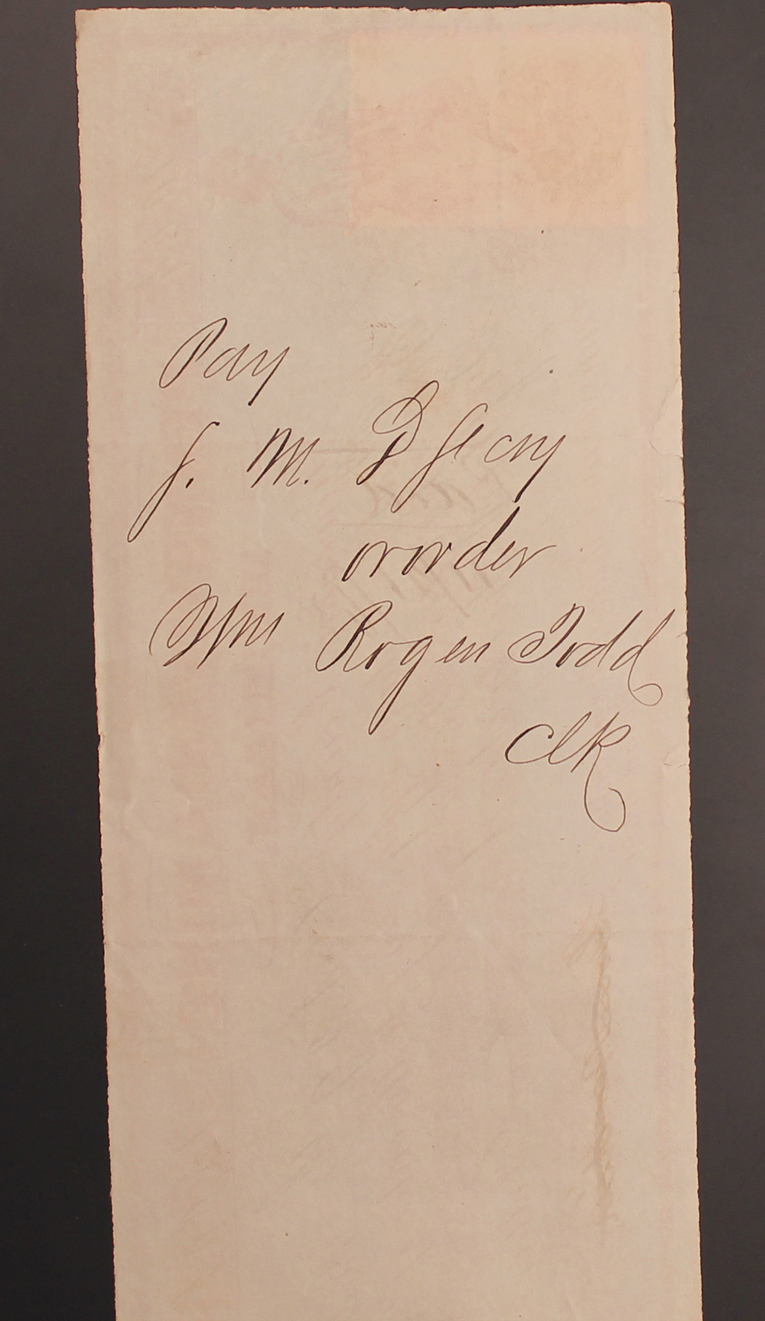 Pay
J. M. D Gay
or order
Wm Rogers Todd
Clk